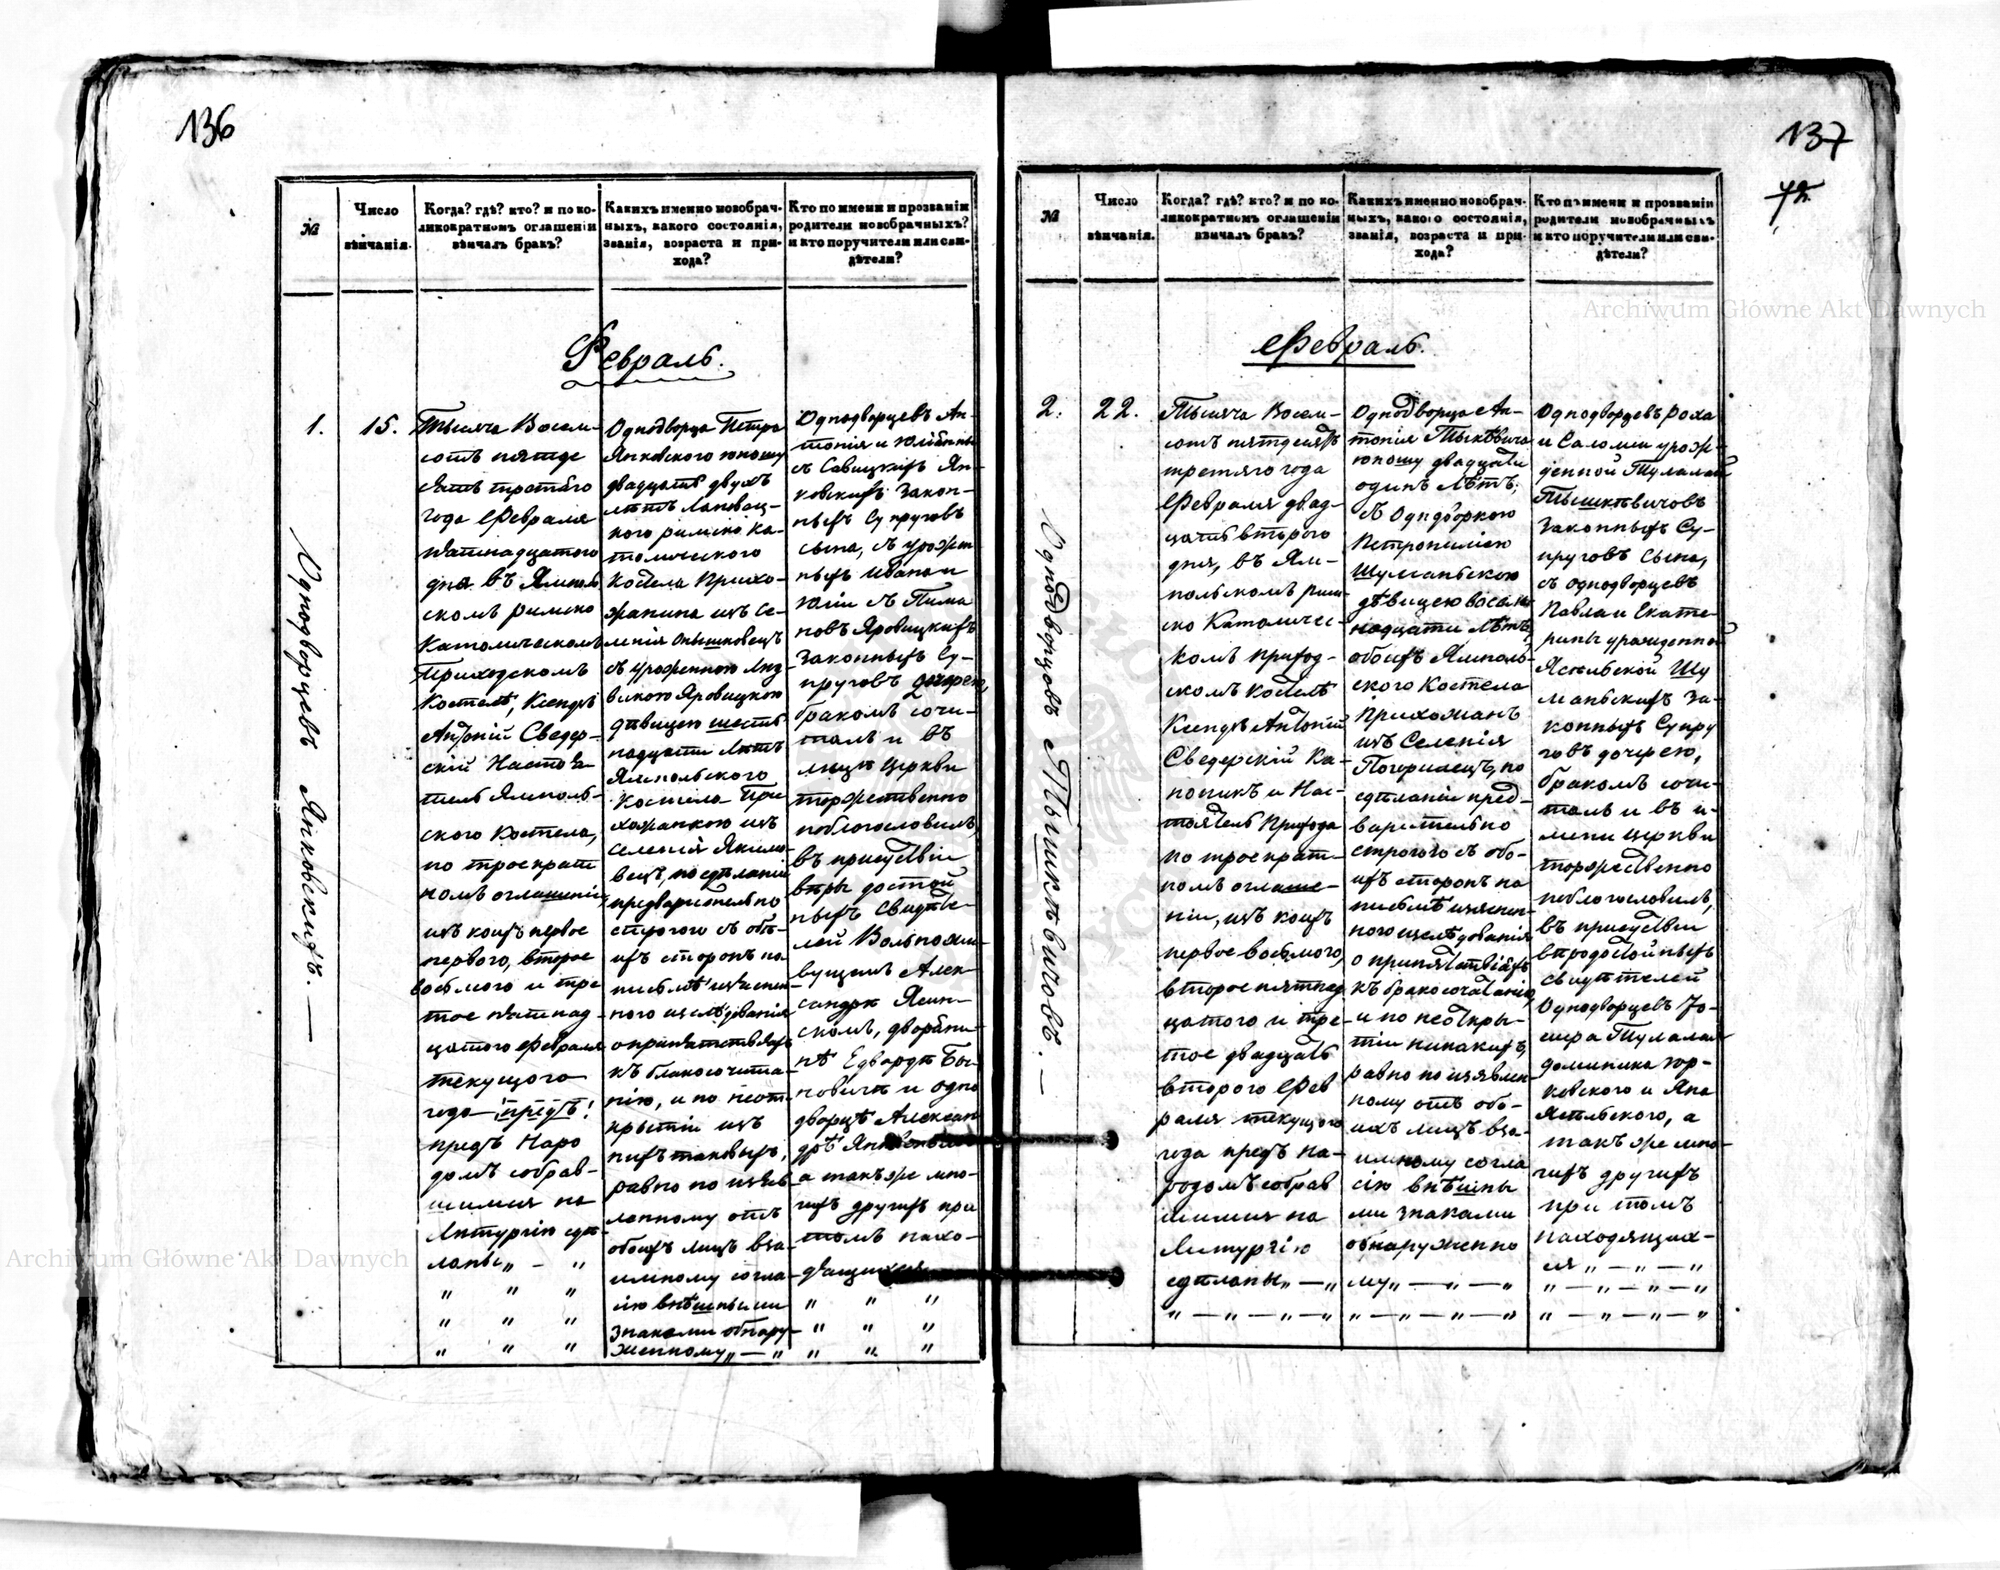 136
№
Число вѣнчанія.
Когда? гдѣ? кто? и по ко-
ликократномъ оглашеніи
вѣнчалъ бракъ?
Какихъ именно новобрач-
ныхъ, какого состоянія,
званія, возраста и при-
хода?
Кто по имени и прозванію
родители новобрачныхъ?
и кто поручители или сви-
дѣтели?
Февраль.
1.
15.
Однодворцевъ Янковскихъ. —
Тысяча Восем-
сотъ пятьде
сятъ третяго
года Февраля
пятнадцатого
дня въ Ямполь
скомъ римско
Католическомъ
Приходскомъ
Костелѣ, Ксендзъ
Антоній Сведер-
скій Настоя
тель Ямполь-
ского костела,
по троекрат
номъ оглашеніи,
изъ коихъ первое
первого, второе
восьмого и тре
тое пятнад-
цатого Февраля
текущого
года предъ!
предъ Наро
домъ собрав-
шимся на
Литургію сдѣ-
ланы „ — „
„ „ „
„ „ „
„ „ „
Однодворца Петра
Янковского юношу
двадцать двухъ
лѣтъ Лановец-
кого римско ка-
толического
костела Прихо-
жанина изъ се-
ленія
съ урожденною
Яровицкою
дѣвицею шест
надцати лѣтъ
Ямпольского
Костела При
хожанкою изъ
селенія Якимо
вецъ, по сдѣланіи
предварительно
строгого съ обо-
ихъ сторонъ на
письмѣ изъяснен-
ного изслѣдованія
о препятствіяхъ
къ бракосочета-
нію, и по неот-
крытіи изъ
нихъ таковыхъ,
равно по изъяв-
ленному отъ
обоихъ лицъ вза-
имному согла-
сію внѣшными
знаками обнару-
женному „ — „
Однодворцевъ Ан-
тонія и
съ Савицкихъ Ян-
ковскихъ закон-
ныхъ супруговъ
сына, съ урожден
ныхъ Ивана и
Юліи съ
Яровицкихъ
Законныхъ Су-
пруговъ дочерею,
бракомъ сочи-
талъ и въ
лицѣ церкви
торжественно
поблогословилъ,
въ присутствіи
вѣры достой
ныхъ Свидѣте-
лей
Алек-
сандрѣ Ясин-
скомъ, дворяни-
нѣ Едвардѣ
и одно
дворцѣ Алексан
дрѣ
а такъ же мно-
гихъ другихъ при
томъ нахо-
дящихся
„ „ „
„ „ „
„ „ „
137
№
Число вѣнчанія.
Когда? гдѣ? кто? и по ко-
ликократномъ оглашеніи
вѣнчалъ бракъ?
Какихъ именно новобрач-
ныхъ, какого состоянія,
званія, возраста и при-
хода?
Кто по имени и прозванію
родители новобрачныхъ
и кто поручители или сви-
дѣтели?
Февраль.
2.
22.
Однодворцовъ Тышкѣвичовъ. —
Тысяча Восем-
сотъ пятдесятъ
третяго года
Февраля двад-
цать второго
дня, въ Ям-
польскомъ рим
ско Католичес-
комъ приход-
скомъ костелѣ
Ксендзъ Антоній
Сведерскій Ка-
ноникъ и Нас-
тоятель Прихода
по троекрат-
номъ оглаше-
ніи, изъ коихъ
первое восьмого,
второе пятнад
цатого и тре-
тое двадцать
второго Фев
раля текущого
года предъ на-
родомъ собрав
шимся на
Литургію
сдѣланы „ — „
„ — „ — „ — „
Однодворца Ан-
тонія Тышкѣвича
юношу двадцати
одинъ лѣтъ,
съ Однодворкою
Петронилею
Шуманьскою
дѣвицею восем
надцати лѣтъ,
обоихъ Ямполь-
ского Костела
Прихожанъ
изъ Селенія
по
сдѣланіи пред-
варительно
строгого съ обо-
ихъ сторонъ на
письмѣ изъяснен-
ного изслѣдованія
о препятствіяхъ
къ бракосочетанію,
и по неоткры-
тіи никакихъ,
равно по изъявлен-
ному отъ обо-
ихъ лицъ вза-
имному согла
сію внѣшны
ми знаками
обнаруженно
му „ — „ — „
„ — „ — „ — „
Однодворцевъ Роха
и Саломеи урож-
денной
Тышкѣвичовъ
Законныхъ Су-
пруговъ сына,
съ однодворцевъ
Павла и Екате-
рины урожденной
Шу
маньскихъ За-
конныхъ Супру
говъ дочерею,
бракомъ сочи-
талъ и въ и-
мени церкви
торжественно
поблогословилъ,
въ присутствіи
вѣродостойныхъ
свидѣтелей
Однодворцевъ
Доминика Гор-
ковского и Яна
а
такъ же мно-
гихъ другихъ
при томъ
находящих-
ся „ — „ — „
„ — „ — „ — „
„ — „ — „ — „
Archiwum Główne Akt Dawnych
Archiwum Główne Akt Dawnych